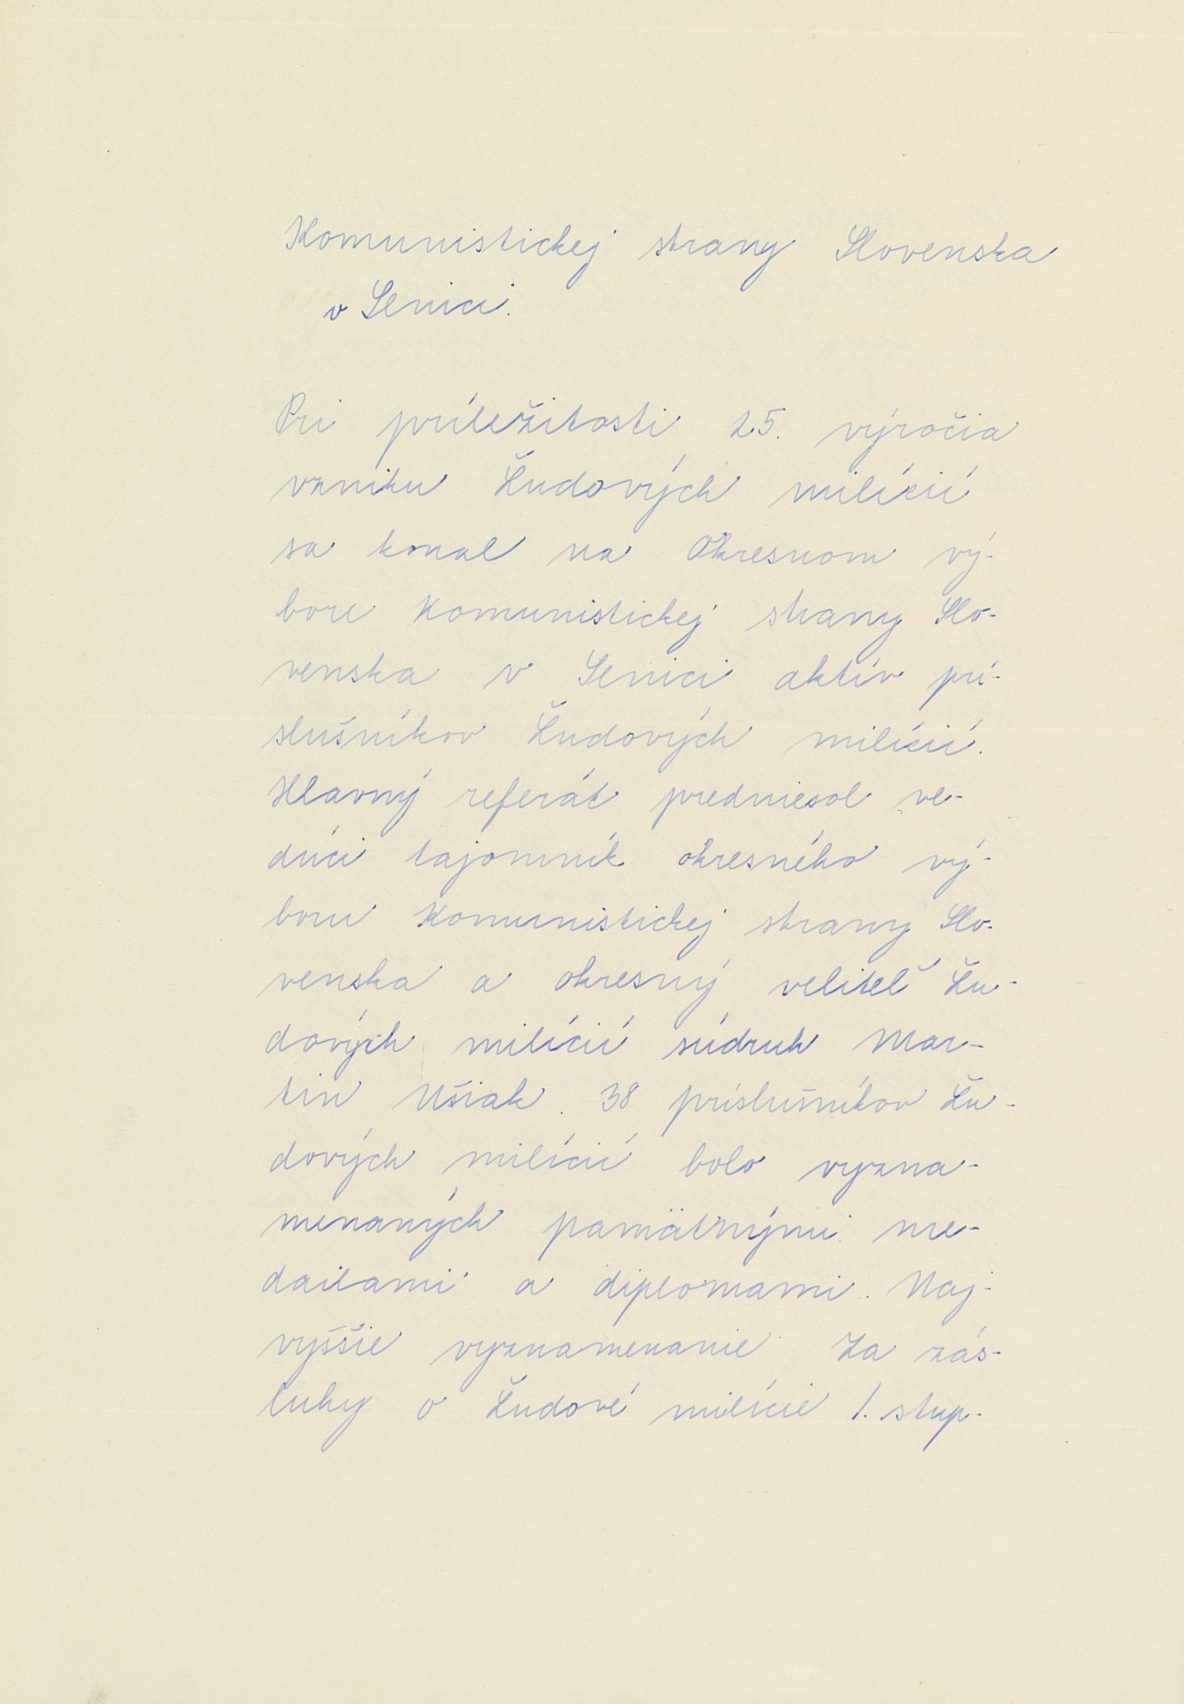 Komunistickej strany Slovenska
v Senici.
Pri príležitosti 25. výročia
vzniku Ľudových milícií
sa konal na Okresnom vý-
bore Komunistickej strany Slo-
venska v Senici aktív prí-
slušníkov Ľudových milícií.
Hlavný referát predniesol ve-
dúci tajomník okresného vý-
boru Komunistickej strany Slo-
venska a okresný veliteľ Ľu-
dových milícií súdruh Mar-
tin Ušiak. 38 príslušníkov Ľu-
dových milícií bolo vyzna-
menaných pamätnými me-
dailami a diplomami. Naj-
vyššie vyznamenanie Za zás-
luhy o Ľudové milície I. stup-